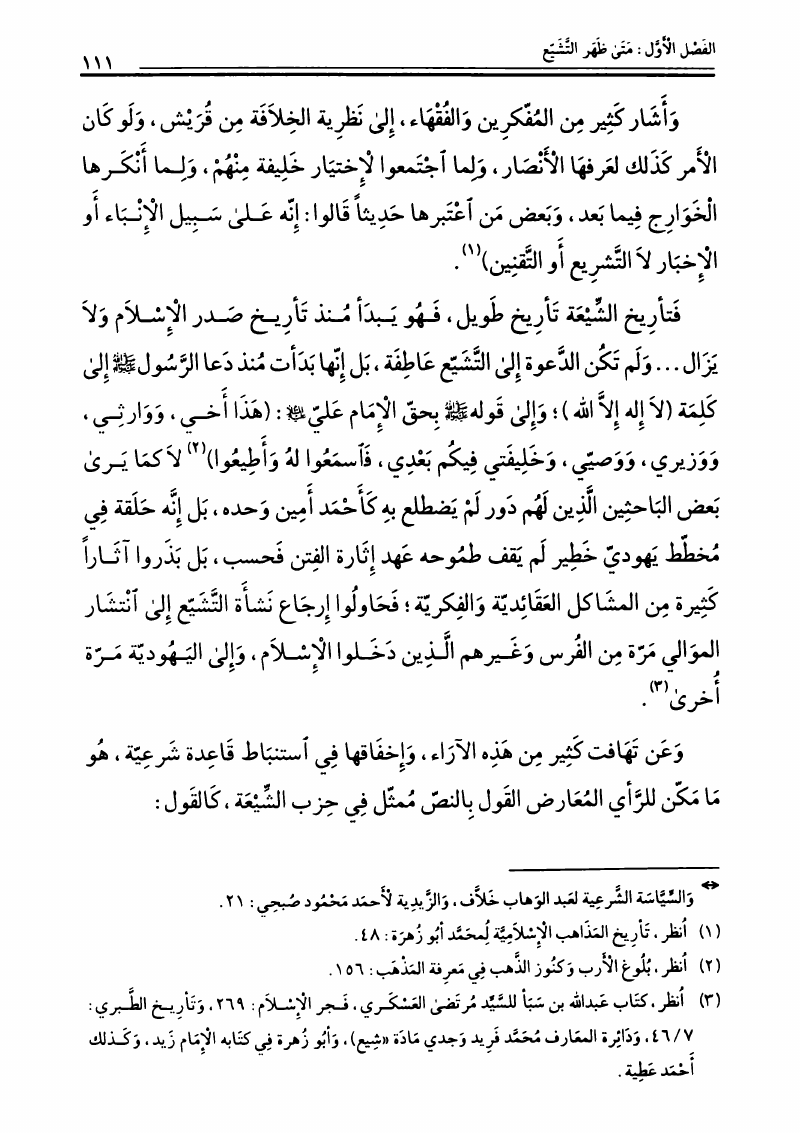 الفَصْل الْأَوَّل : مَتَىٰ ظَهَر التَّشَيّع
١١١
وَأَشَار كَثِير مِن المُفّكرِين وَالفُقْهَاء ، إِلىٰ نَظرِية الخِلاَفَة مِن قُرَيْش ، وَلَو كَان
الْأَمر كَذَلك لعَرفهَا الْأَنْصَار ، وَلِما ٱجْتَمعوا لْإِختيَار خَلِيفة مِنْهُمْ ، وَلِـما أَنْكَـرها
الْخَوَارِج فِيما بَعد ، وَبَعض مَن ٱعْتَبرها حَدِيثاً قَالوا : إِنّه عَـلىٰ سَـبِيل الْإِنْـبَاء أَو
الْإِخبَار لاَ التَّشرِيع أَو التَّقنِين)(١) .
فَتأرِيخ الشِّيْعَة تَأرِيخ طَويل ، فَـهُو يَـبدَأ مُـنذ تَأرِيـخ صَـدر الْإِسْـلاَم وَلاَ
يَزَال ... وَلَم تَكُن الدَّعوة إِلىٰ التَّشَيّع عَاطِفَة ، بَل إِنّها بَدَأت مُنذ دَعا الرَّسُول ﷺ إِلىٰ
كَلِمَة (لاَ إِله إِلاَّ الله ) ؛ وَإِلىٰ قَوله ﷺ بِحقّ الْإِمَام عَليّ ؑ : (هَذَا أَخـي ، وَوَارثـِي ،
وَوَزِيري ، وَوَصيّي ، وَخَلِيفَتي فِيكُم بَعْدِي ، فَٱسمَعُوا لهُ وَأَطِيعُوا)(٢) لاَ كمَا يَـرىٰ
بَعض البَاحثِين الَّذِين لَهُم دَور لَمْ يَضطلع بهِ كَأَحْمَد أَمِين وَحده ، بَل إِنَّه حَلَقة فِي
مُخطّط يَهوديّ خَطِير لَم يَقف طمُوحه عَهد إِثَارة الفِتن فَحسب ، بَل بَذَروا آثَـاراً
كَثِيرة مِن المشَاكل العَقَائديّة وَالفِكريّة ؛ فَحَاولُوا إِرجَاع نَشأَة التَّشَيّع إِلىٰ ٱنْتشَار
الموَالي مَرّة مِن الفُرس وَغَـيرهم الَّـذِين دَخَـلوا الْإِسْـلاَم ، وَإِلىٰ اليَـهُوديّة مَـرّة
أُخرىٰ(٣) .
وَعَن تَهَافت كَثِير مِن هَذِه الآرَاء ، وَإِخفَاقها فِي ٱستنبَاط قَاعِدة شَرعِيّة ، هُو
مَا مَكّن للرَّأي المُعَارض القَول بِالنصّ مُمثّل فِي حِزب الشِّيْعَة ، كَالقَول :
↔ وَالسِّيَّاسَة الشَّرعِية لعَبد الوَهاب خَلاَّف ، وَالزَّيدِية لْأَحمَد مَحْمُود صُبحِي : ٢١ .
(١) أُنظر ، تَأرِيخ المَذَاهب الْإِسْلاَمِيَّة لِمُحَمَّد أَبُو زُهرَة : ٤٨ .
(٢) أُنظر ، بُلُوغ الْأَرب وَكنُوز الذَّهب فِي مَعرِفة المَذْهَب : ١٥٦ .
(٣) أُنظر ، كتَاب عَبدالله بن سَبَأ للسَّيِّد مُرتَضىٰ العَسْكَـري ، فَـجر الْإِسْـلاَم : ٢٦٩ ، وَتَأرِيـخ الطَّـبري :
٤٦/٧ ، وَدَائِرة المعَارف مُحَمَّد فَرِيد وَجدي مَادَة «شِيع) ، وَأبُو زُهرة فِي كتَابه الْإِمَام زَيد ، وَكَـذلك
أَحْمَد عَطِية .